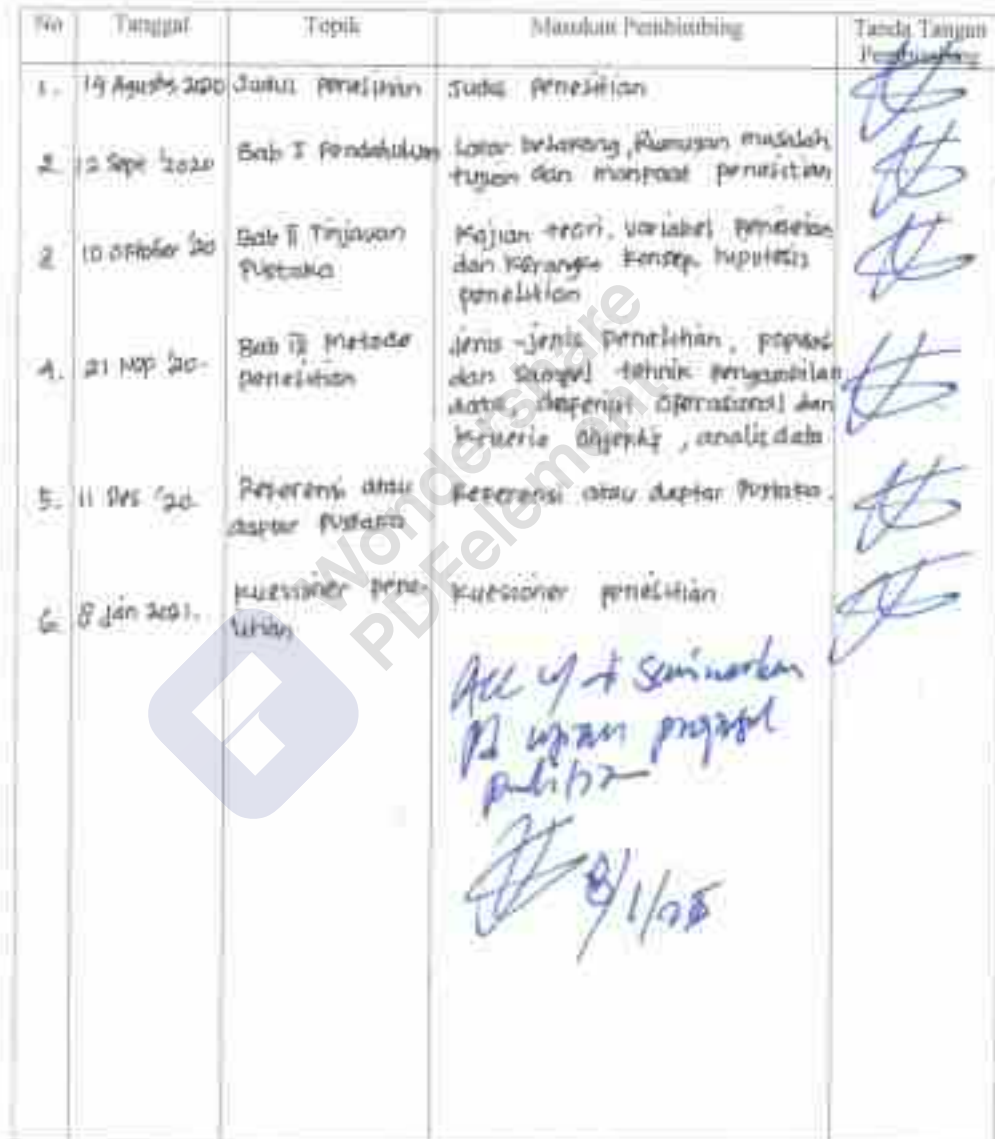 No Tanggal Topik Masukan Pembimbing Tanda Tangan
Pembimbing
1. 19 Agusts 2020 Judul penelitian Judul penelitian
2. 12 Sept '2020 Bab I Pendahuluan Latar belakang, Rumusan masalah
tujuan dan manpaat penelitian
3. 10 Oktober '20 Bab II Tinjauan Kajian teori, variabel penelitian
Pustaka dan Kerangka Konsep, hipotesis
penelitian
4. 21 Nop '20. Bab III Metode jenis-jenis penelitian, populasi
penelitian dan sampel tehnik pengambilan
data, depenisi operasional dan
Kriteria Objektip, analis data
5. 11 Des '20. Reperensi atau Reperensi atau daptar Pustaka.
daptar Pustaka
6. 8 Jan 2021. Kuessioner pene- Kuessioner penelitian
litian
Acc
ujian proposal
8/1/
Wondershare
PDFelement